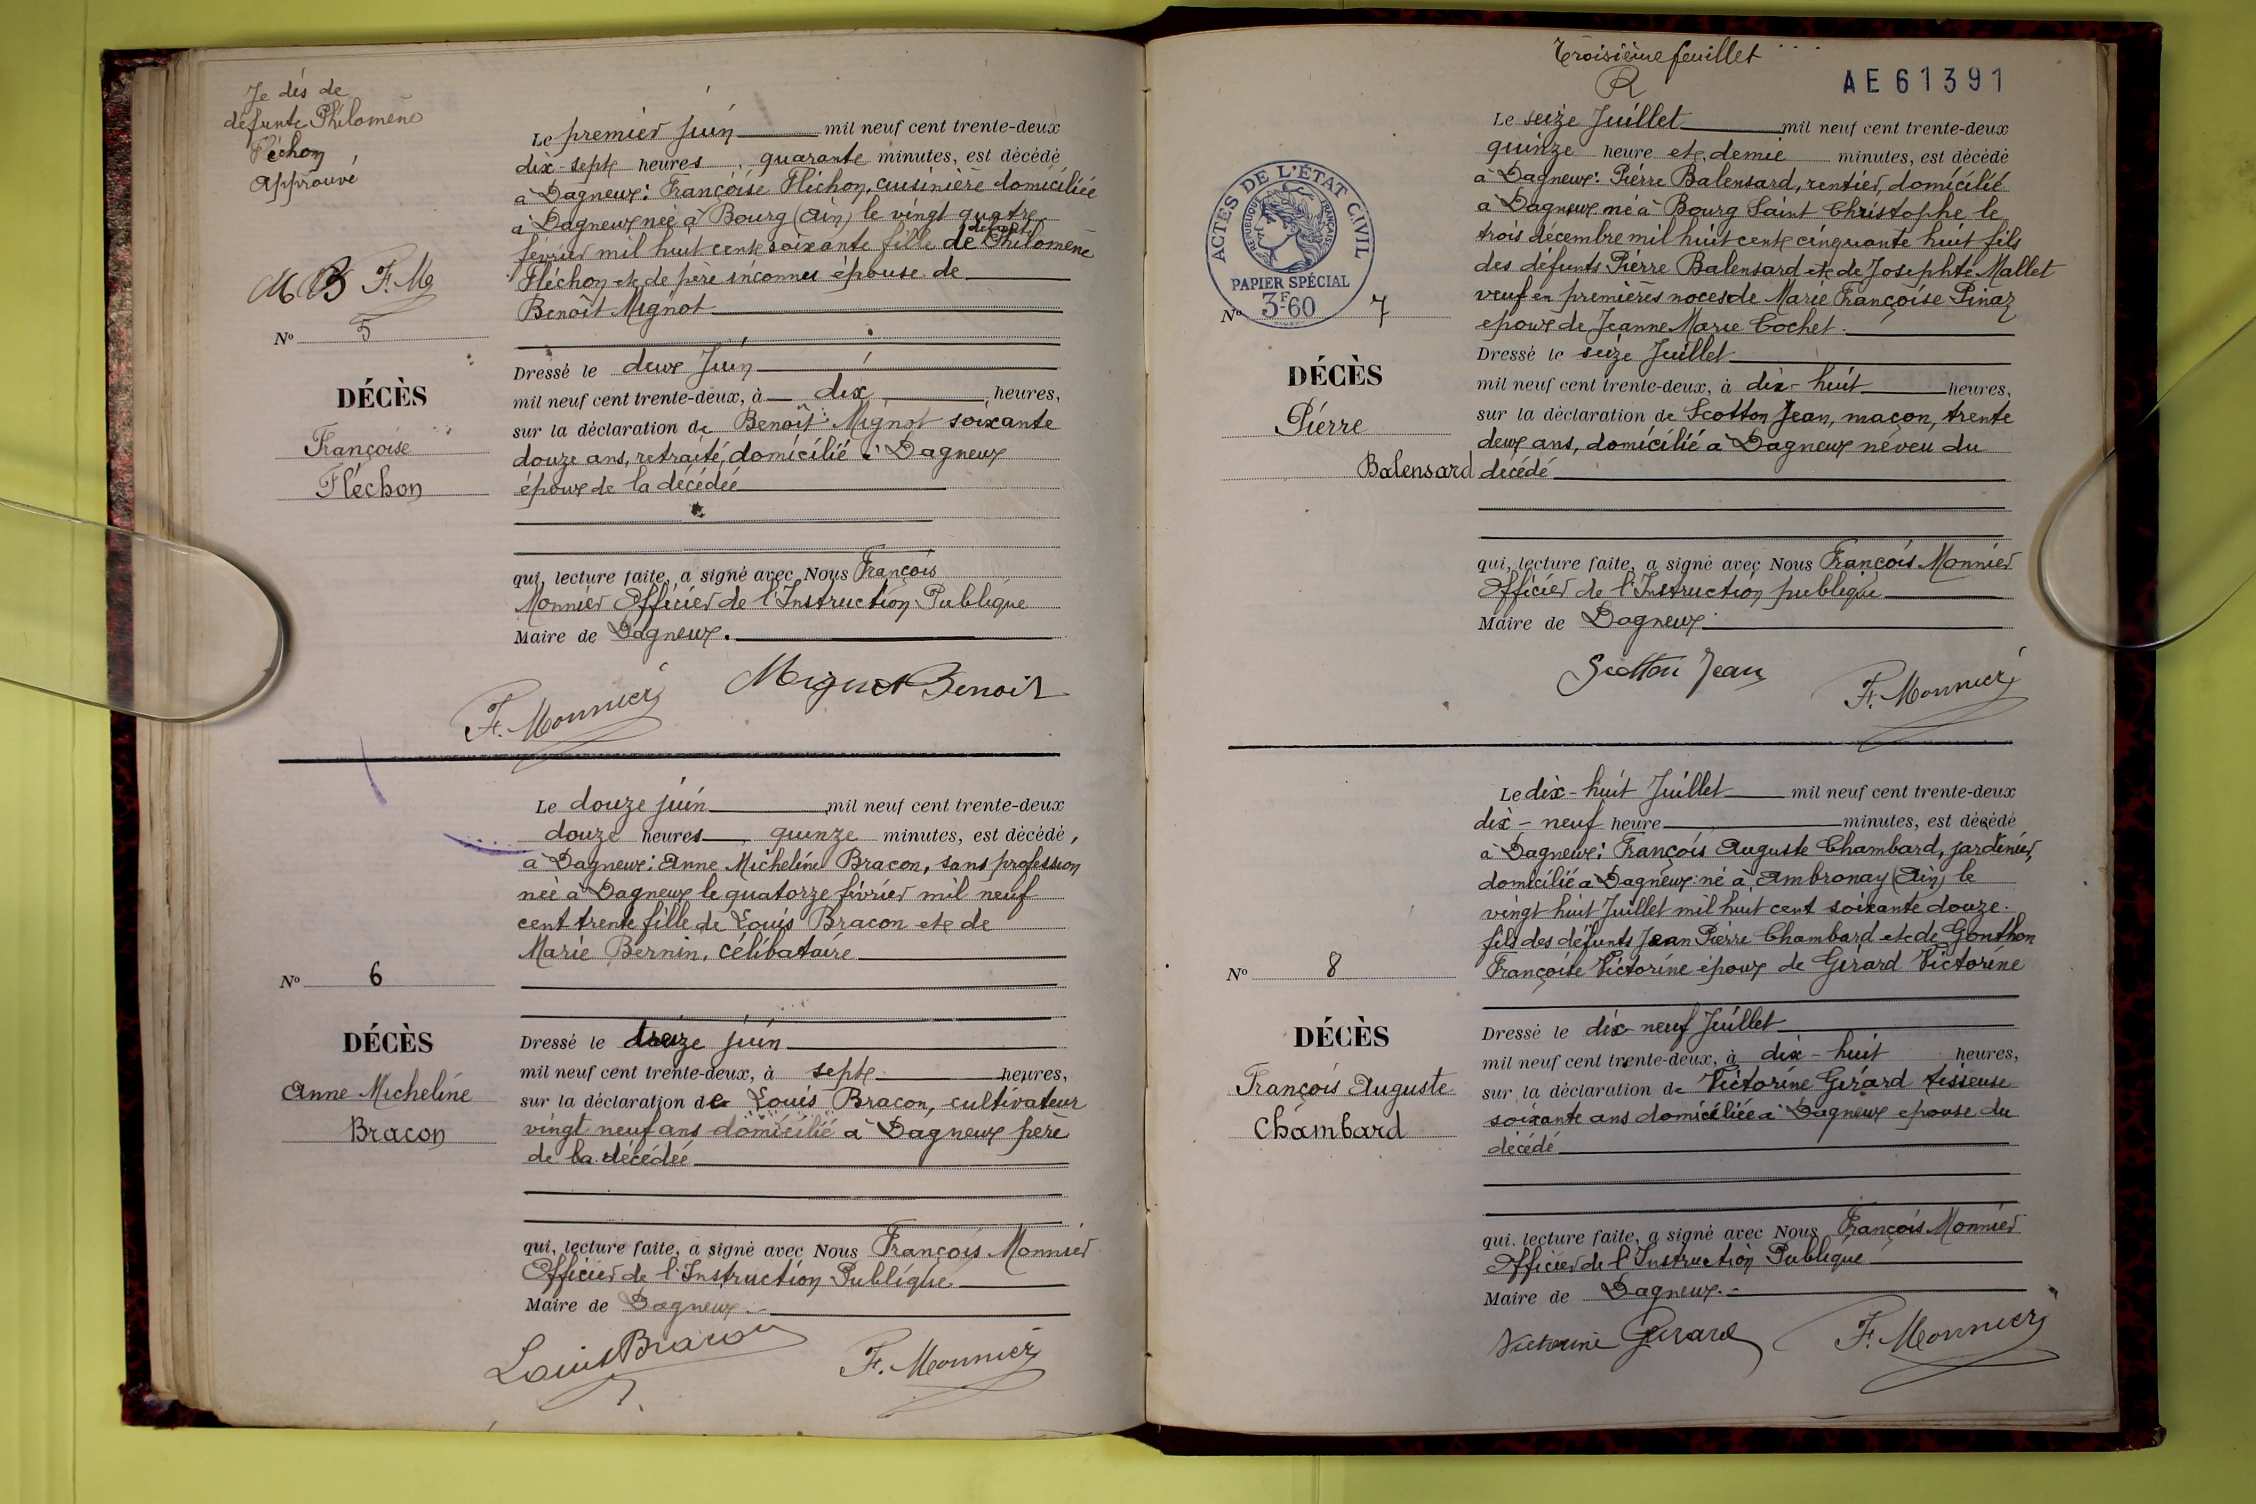 Je dis de
défunte Philomène
Fléchon
Approuvé
MB F.M
Nº 5
DÉCÈS
Françoise
Fléchon
Le premier juin mil neuf cent trente-deux
dix-sept heures, quarante minutes, est décédé
à Dagneux: Françoise Fléchon, cuisinière domiciliée
à Dagneux née à Bourg (Ain) le vingt quatre
février mil huit cent soixante fille de défunte Philomène
Fléchon et de père inconnu épouse de
Benoît Mignot
Dressé le deux Juin
mil neuf cent trente-deux, à dix heures,
sur la déclaration de Benoît Mignot soixante
douze ans, retraité, domicilié à Dagneux
époux de la décédée
qui, lecture faite, a signé avec Nous François
Monnier Officier de l'Instruction Publique
Maire de Dagneux.
F. Monnier Mignot Benoit
Nº 6
DÉCÈS
Anne Micheline
Bracon
Le douze juin mil neuf cent trente-deux
douze heures, quinze minutes, est décédé,
à Dagneux: Anne Micheline Bracon, sans profession
née à Dagneux le quatorze février mil neuf
cent trente fille de Louis Bracon et de
Marie Bernin, célibataire
Dressé le treize juin
mil neuf cent trente-deux, à sept heures,
sur la déclaration de Louis Bracon, cultivateur
vingt neuf ans domicilié à Dagneux père
de la décédée
qui, lecture faite, a signé avec Nous François Monnier
Officier de l'Instruction Publique
Maire de Dagneux.
Louis Bracon F. Monnier
Troisième feuillet
R
AE61391
ACTES DE L'ÉTAT CIVIL
RÉPUBLIQUE FRANÇAISE
PAPIER SPÉCIAL
3F60
Nº 7
DÉCÈS
Pierre
Balensard
Le seize Juillet mil neuf cent trente-deux
quinze heure et demie minutes, est décédé
à Dagneux: Pierre Balensard, rentier, domicilié
à Dagneux né à Bourg Saint Christophe le
trois décembre mil huit cent cinquante huit fils
des défunts Pierre Balensard et de Josephte Mallet
veuf en premières noces de Marie Françoise Pinaz
époux de Jeanne Marie Cochet.
Dressé le seize Juillet
mil neuf cent trente-deux, à dix-huit heures,
sur la déclaration de Scotton Jean, maçon, trente
deux ans, domicilié à Dagneux neveu du
décédé
qui, lecture faite, a signé avec Nous François Monnier
Officier de l'Instruction publique
Maire de Dagneux
Scotton Jean F. Monnier
Nº 8
DÉCÈS
François Auguste
Chambard
Le dix-huit Juillet mil neuf cent trente-deux
dix-neuf heure minutes, est décédé
à Dagneux: François Auguste Chambard, jardinier,
domicilié à Dagneux né à Ambronay (Ain) le
vingt huit Juillet mil huit cent soixante douze.
fils des défunts Jean Pierre Chambard et de Gonthon
Françoise Victorine époux de Gérard Victorine
Dressé le dix-neuf Juillet
mil neuf cent trente-deux, à dix-huit heures,
sur la déclaration de Victorine Gérard tisseuse
soixante ans domiciliée à Dagneux épouse du
décédé
qui, lecture faite, a signé avec Nous François Monnier
Officier de l'Instruction Publique
Maire de Dagneux.
Victorine Gerard F. Monnier